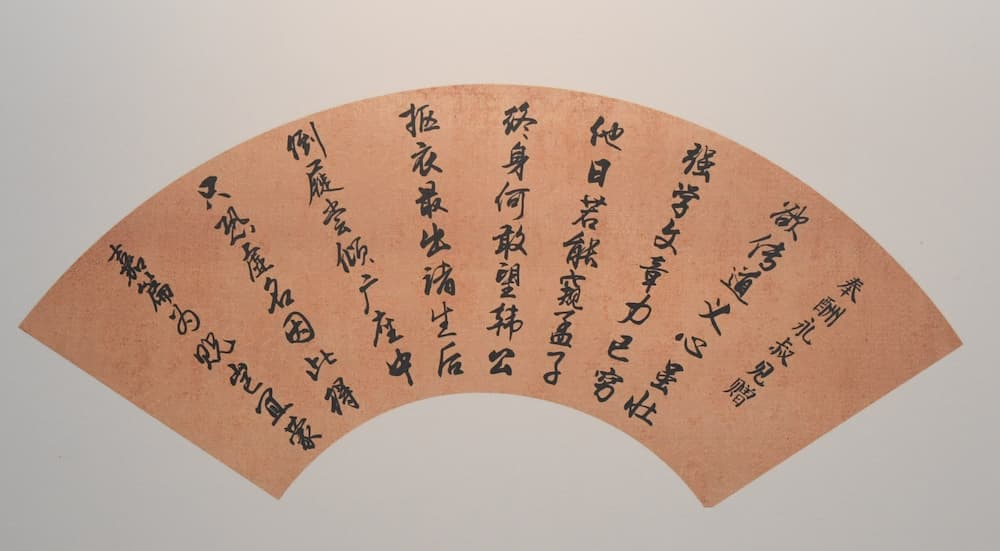 奉酬永叔见赠
欲传道义心虽壮
强学文章力已穷
他日若能窥孟子
终身何敢望韩公
抠衣最出诸生后
倒屣尝倾广座中
只恐虚名因此得
嘉篇为贶岂宜蒙